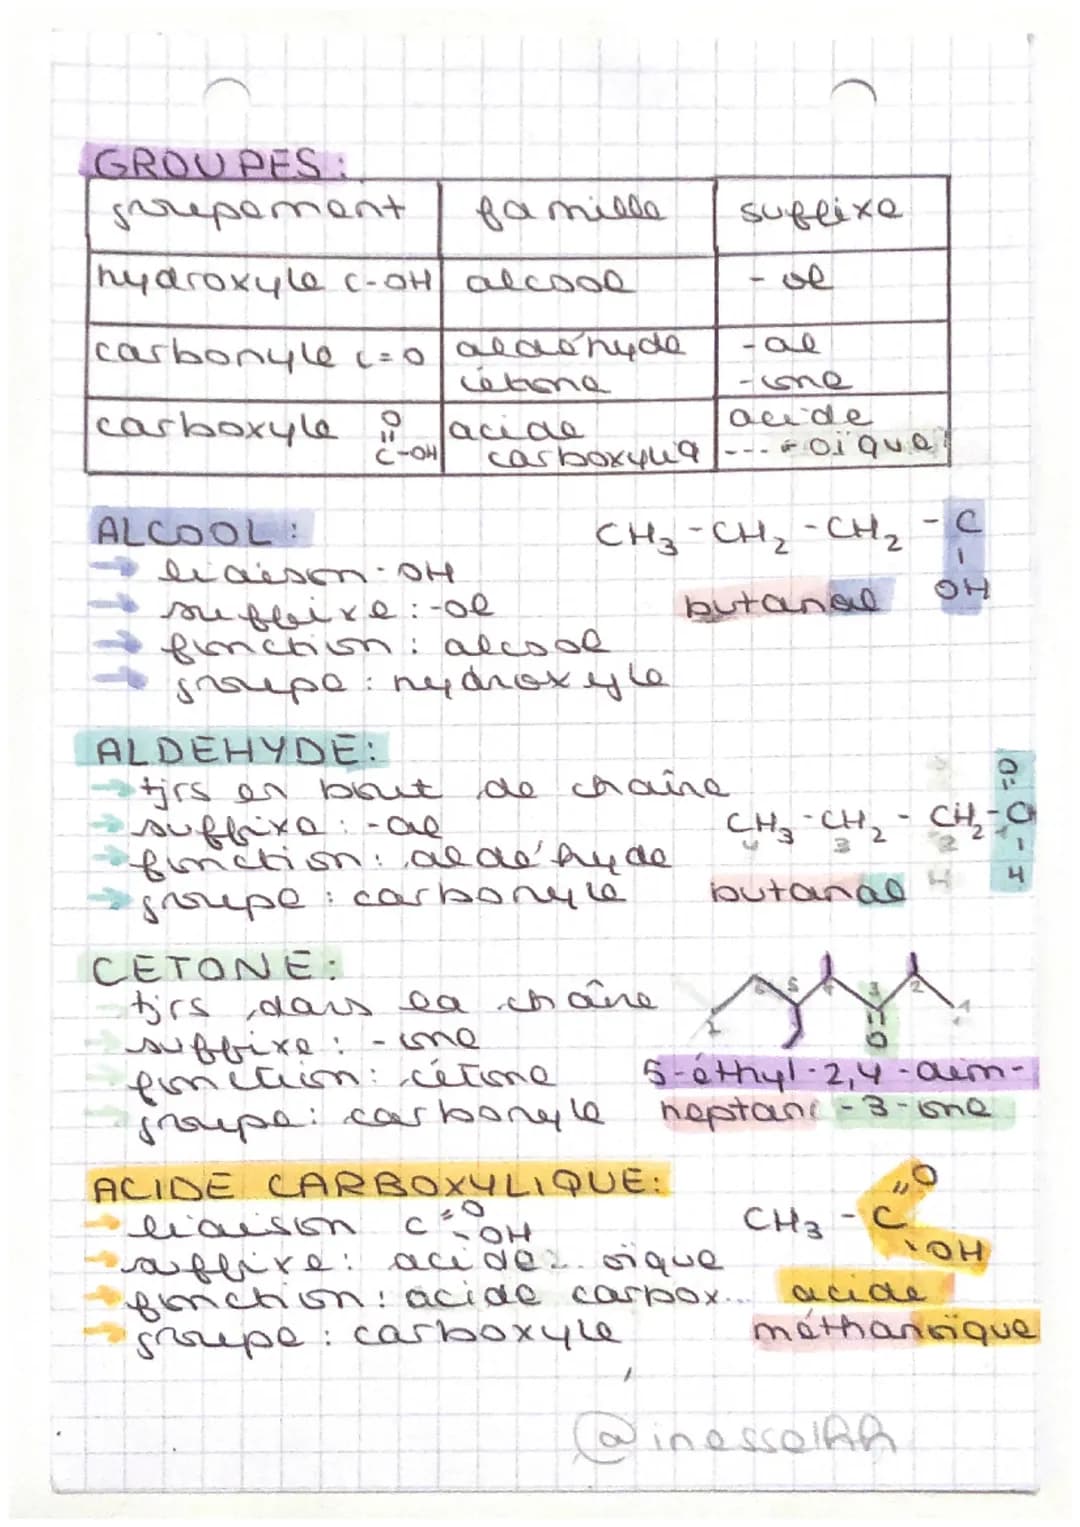 GROUPES:
groupement famille suffixe
hydroxyle C-OH alcool -ol
carbonyle C=O aldéhyde -al
cétone -one
carboxyle O acide acide
=
C-OH carboxyliq ---- oïque
ALCOOL: CH3-CH2-CH2-C
→ liaison -OH
OH
→ suffixe: -ol butanol
→ fonction: alcool
→ groupe: hydroxyle
ALDEHYDE:
→ tjrs en bout de chaîne O
=
→ suffixe: -al CH3-CH2-CH2-C
4 3 2 1
→ fonction: aldéhyde H
→ groupe: carbonyle butanal
CETONE:
→ tjrs dans la chaîne 7 6 5 4 3 2 1
→ suffixe: -one O
→ fonction: cétone 5-éthyl-2,4-dim-
→ groupe: carbonyle heptan-3-one
ACIDE CARBOXYLIQUE:
→ liaison C=O-OH CH3-C=O
OH
→ suffixe: acide... oïque
→ fonction: acide carbox... acide
→ groupe: carboxyle méthanoïque